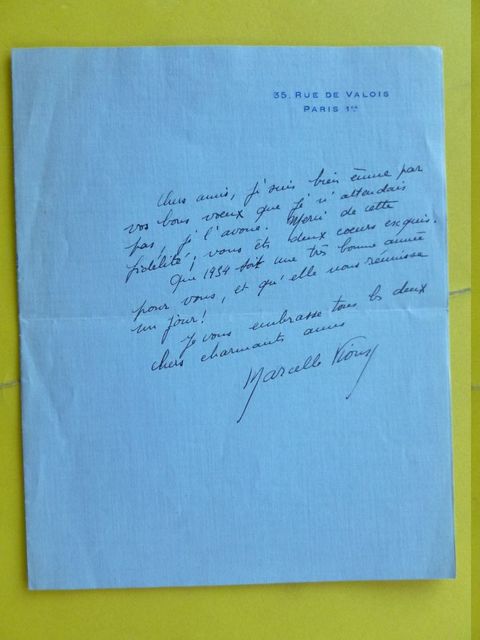 35, RUE DE VALOIS
PARIS 1ER
Chers amis, je suis bien émue par
vos bons vœux que je n'attendais
pas, je l'avoue. Merci de cette
fidélité, vous êts deux cœurs exquis.
Que 1934 soit une très bonne année
pour vous, et qu'elle nous réunisse
un jour!
Je vous embrasse tous les deux
chers charmants amis
Marcelle Vioux